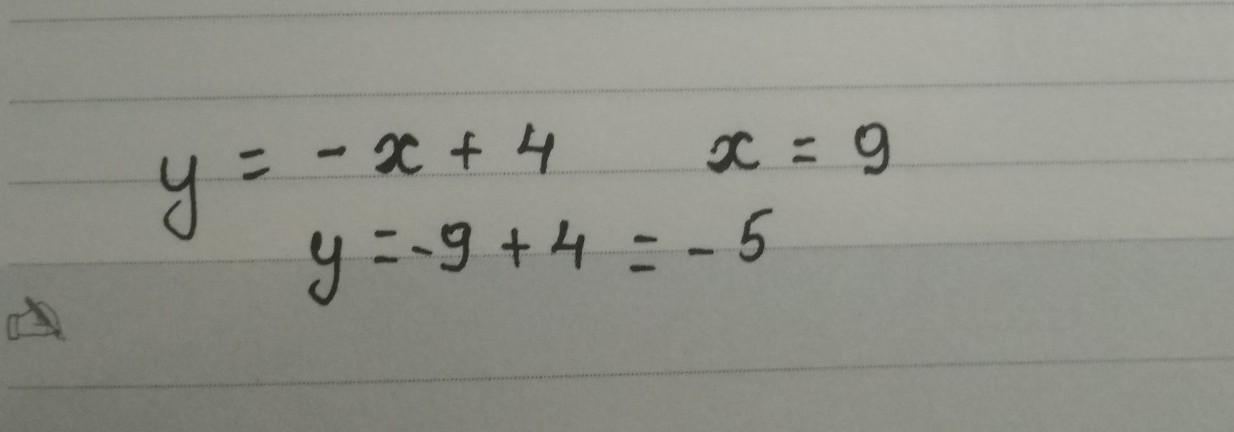 y = - x + 4 x = 9
y = -9 + 4 = - 5